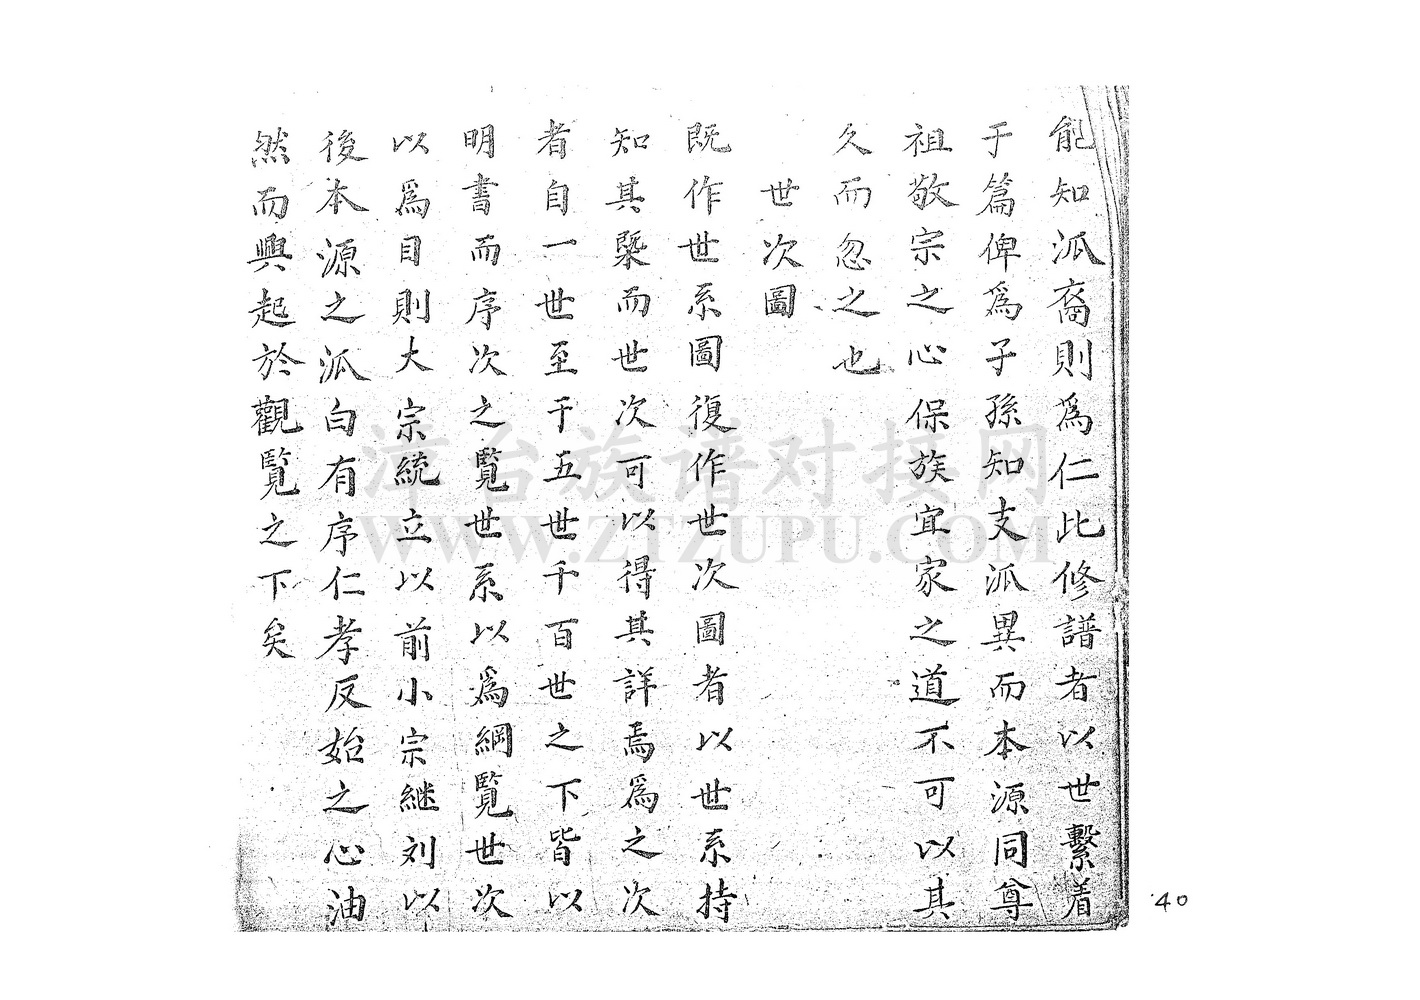 能知泒裔則爲仁比修譜者以世繫着
于篇俾爲子孫知支泒異而本源同尊
祖敬宗之心保族宜家之道不可以其
久而忽之也
世次圖
既作世系圖復作世次圖者以世系持
知其槩而世次可以得其詳焉爲之次
者自一世至于五世千百世之下皆以
明書而序次之覽世系以爲綱覽世次
以爲目則大宗統立以前小宗継列以
後本源之泒白有序仁孝反始之心油
然而興起於觀覽之下矣
漳台族谱对接网
WWW.ZTZUPU.COM
40